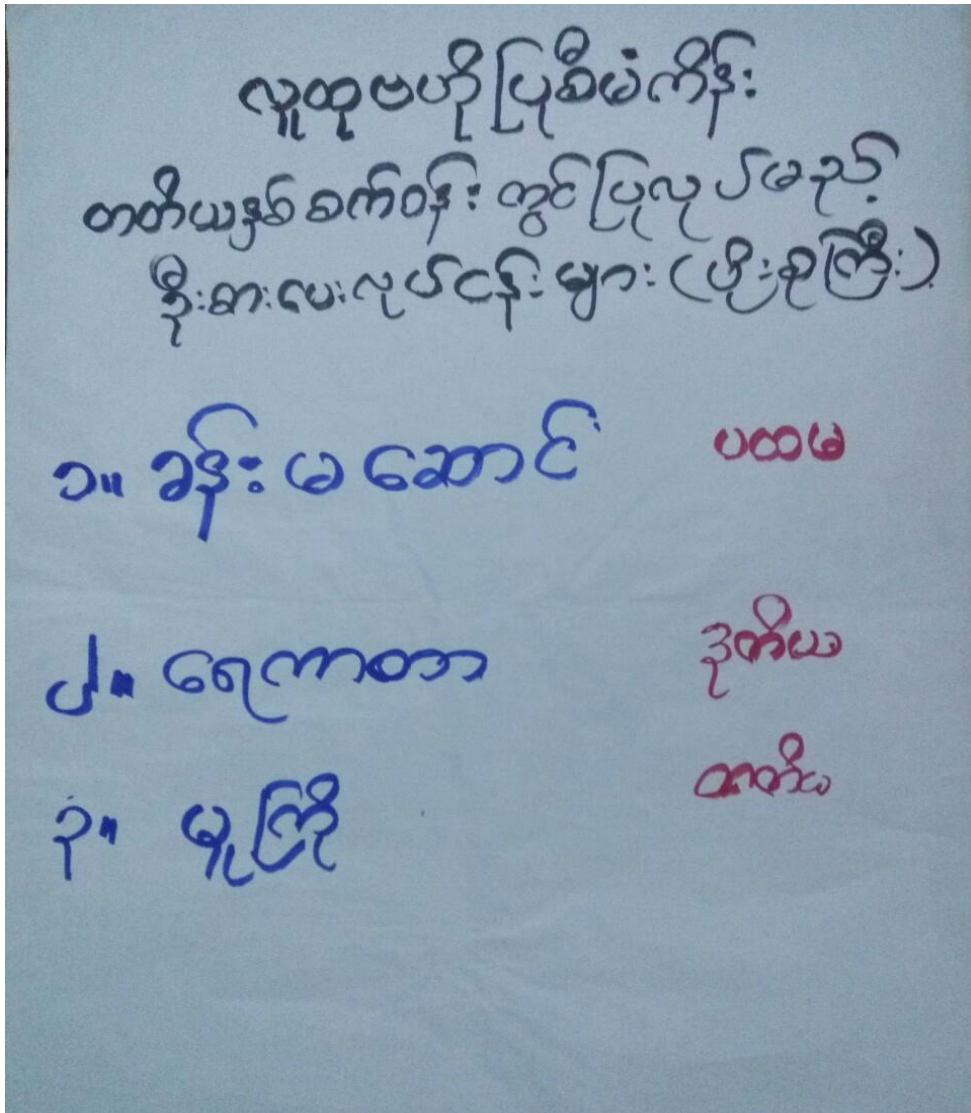 လူထုဗဟိုပြုစီမံကိန်း
တတိယနှစ်စက်ဝန်းတွင်ပြုလုပ်မည့်
ဦးစားပေးလုပ်ငန်းများ (ဖိုးစုကြီး)
၁။ ခန်းမဆောင် ပထမ
၂။ ရေကာတာ ဒုတိယ
၃။ မူကြို တတိယ